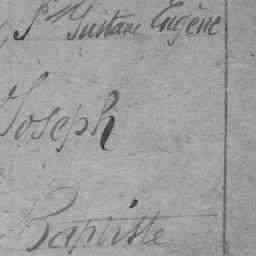 Gustave Eugène
Joseph
Baptiste